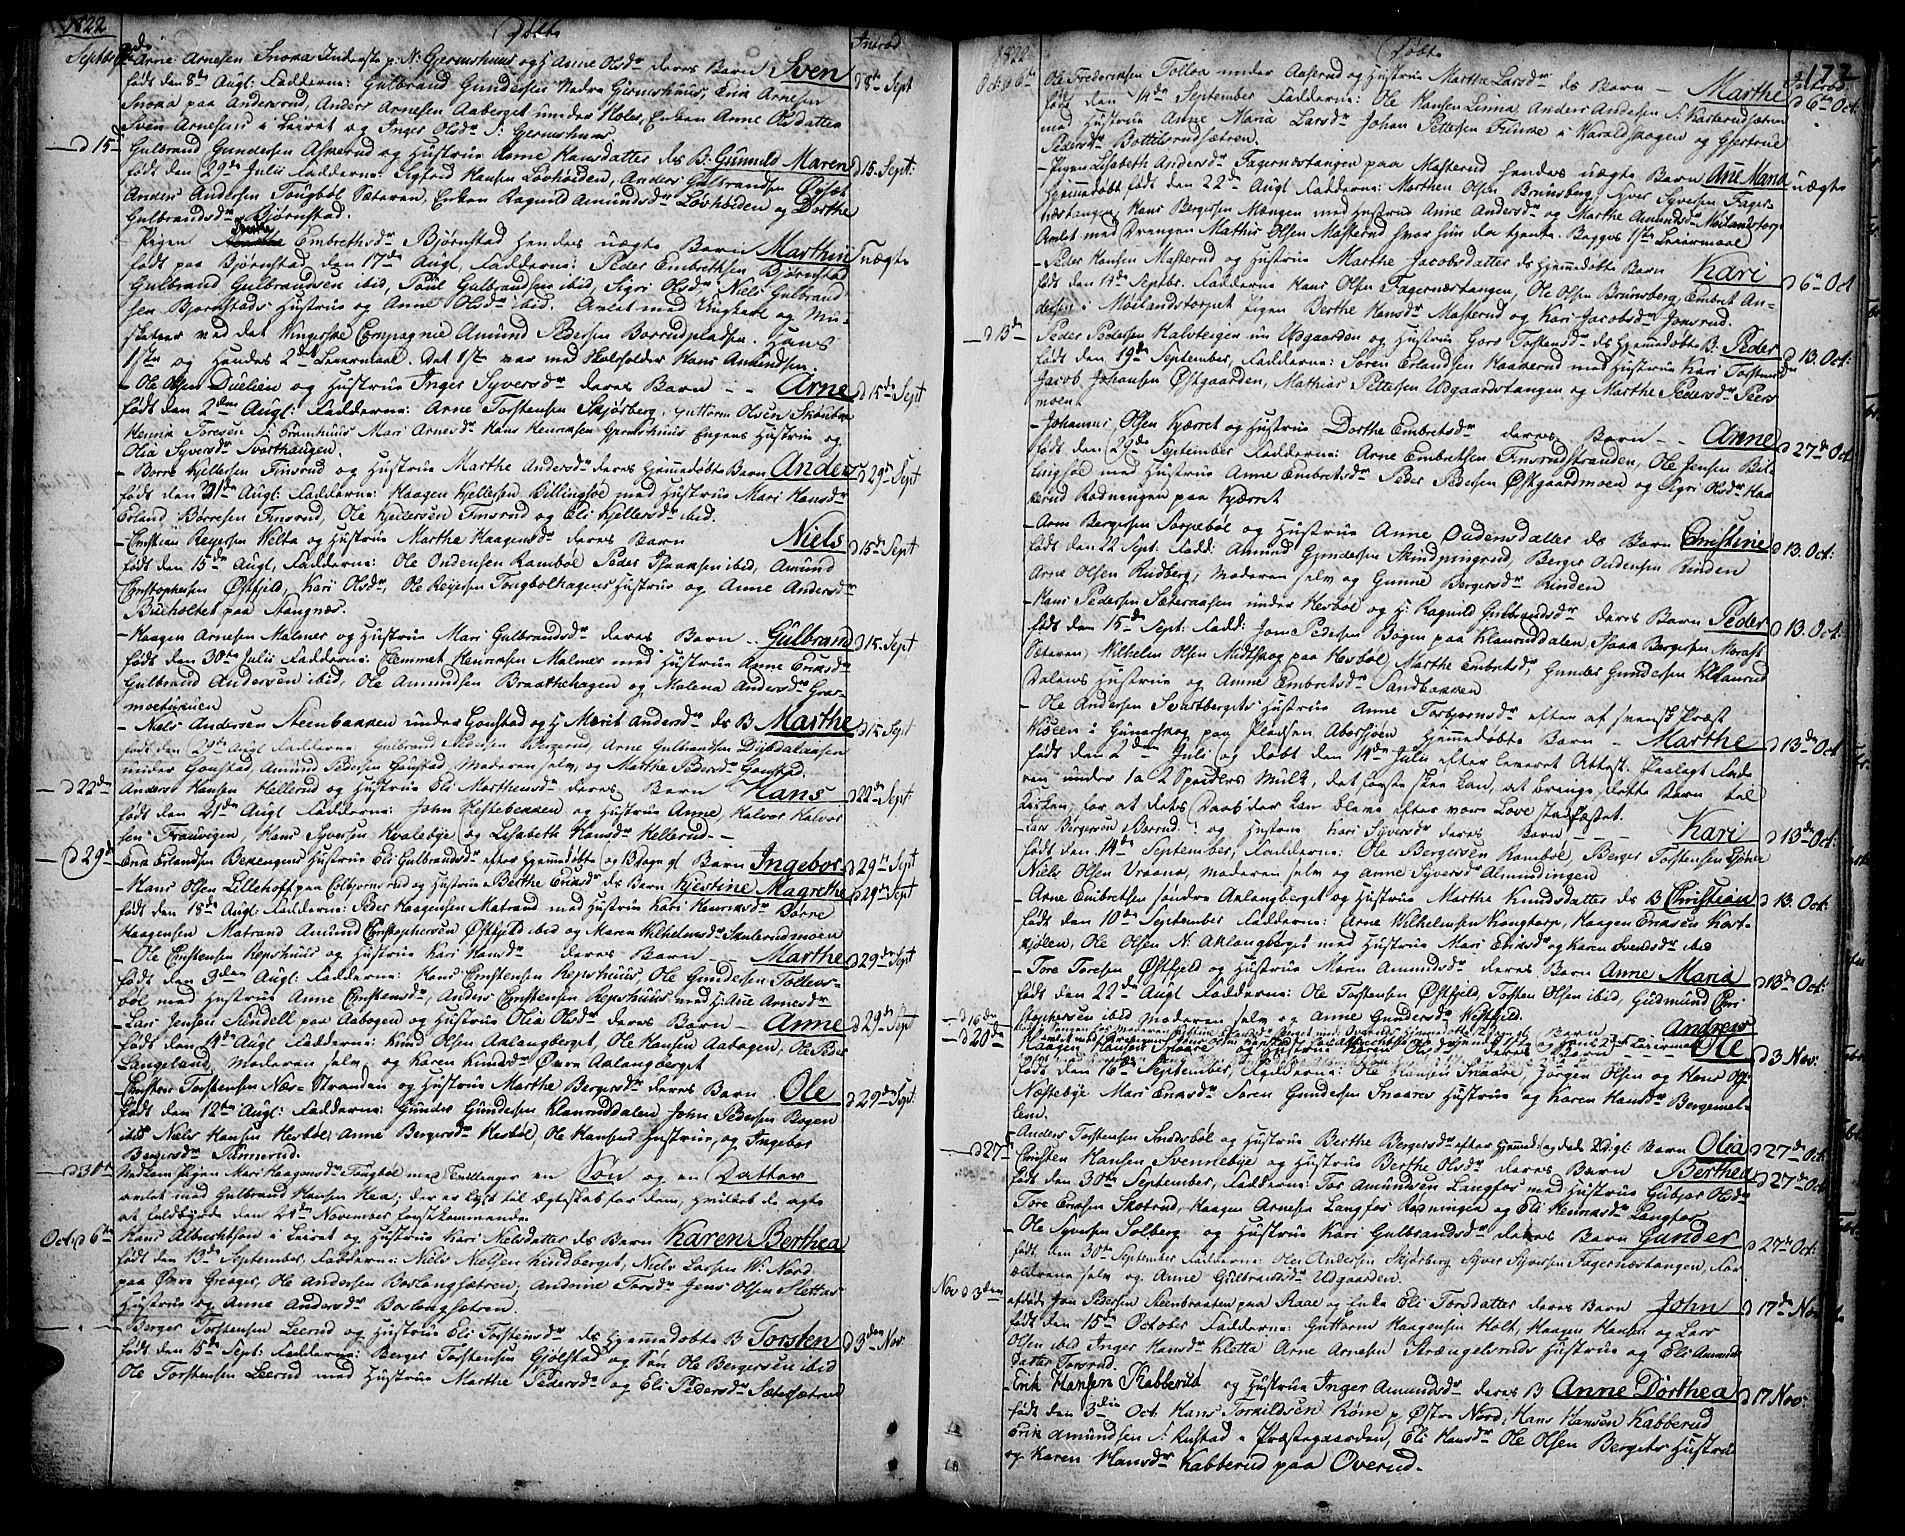 1822 Døbte Introd
Septbr
Arne Arnesen Snoxa Inderste p. N: Gjermshuus og H: Anne Olsdr deres Barn Sven d 8de Sept
født den 8de Augt: Fadderne: Gulbrand Gundersen Nedre Gjermshuus, Erik Arnesen
Snoxa paa Andersrud, Anders Arnesen Aaberget under Holer, Enken Anne Olsdatter
Sven Arnesen i Leiret og Inger Olsdr S: Gjermshuus
d 15 Gulbrand Gundersen Askerud og Hustrue Anne Hansdatter ds B: Gunuld Maren d 15 Sept:
født den 29de Julii Fadderne: Sigfred Hansen Lovhøiden, Anders Gulbrandsen Øyset
Anders Andersen Tougbøl Sæteren, Enken Ragnild Amundsdr Lovhøiden og Dorthe
Gulbrandsdr Bjørnstad.
Pigen Embrethsdr Bjørnstad hendes uægte Barn Marthin uægte
født paa Bjørnstad den 17de Augt, Fadderne: Peder Embrethsen Bjørnstad
Gulbrand Gulbrandsen ibid, Poul Gulbrandsen ibid, Sigri Olsdr Niels Gulbrand
sen Bjørnstads Hustrue og Anne Olsdr ibid. Avlet med Ungkarl og Mu-
sketeer ved det Vingerske Compagnie Amund Pedersen Borrudpladsen. Hans
1ste og hendes 2det Leiermaal. Det 1ste var med Skoleholder Hans Amundsen.
Ole Olsen Duelien og Hustrue Inger Syversdr deres Barn - - Arne d 15de Sept
født den 2den Augt: Fadderne: Arne Torstensen Skjørberg, Guttorm Olsen
Henrik Toresen S: Framhuus Mari Arnesdr Hans Henriksen Gjermshuus Engens Hustrue og
Olia Syversdr Svorthaugen.
Børre Kjeldsen Finsrud og Hustrue Marthe Andersdr deres Hjemmedøbte Barn Anders d 29de Sept
født den 21de Augt: Fadderne: Haagen Kjeldsen Billingsøe med Hustrue Mari Hansdr
Erland Børresen Finsrud, Ole Kjeldsen Finsrud og Eli Kjeldsdr ibid.
Christian Reyersen Velta og Hustrue Marthe Haagensdr deres Barn Niels d 15de Sept
født den 15de Augt, Fadderne: Ole Ondensen Ramboe Peder Isaaksen ibid, Amund
Christophersen Østfjeld, Kari Olsdr, Ole Reyersen Tougbolhagens Hustrue og Anne Andersdr
Bueholtet paa Stangnæs.
Haagen Arnesen Malmer og Hustrue Mari Gulbrandsdr deres Barn Gulbrand d 15 Sept
født den 30te Julii Fadderne: Clemmet Henriksen Malmer med Hustrue Anne Eriksdr
Gulbrand Andersen ibid, Ole Amundsen Braathehagen og Malena Andersdr Gras-
Niels Andersen Steenbakken under Gonstad og H Marit Andersdr ds B Marthe d 15 Sept
født den 29de Augt Fadderne: Gulbrand Pedersen Bergerud, Arne Gulbrandsen Dybdalaasen
under Gonstad, Amund Pedersen Gonstad, Moderen selv, og Marthe Pedersdr Gonstad.
d 22de Anders Hansen Kellerud og Hustrue Eli Morthensdr deres Barn Hans d 22de Sept
født den 21de Augt Fadderne: John Hestebekken og Hustrue Anne, Halvor Halvor
sen Trautvigen, Hans Syversen Kvalebye og Lisabeth Hansdr Kellerud.
d 29de Erik Erlandsen Bekengen Hustrue Eli Gulbrandsdr efter Hjemmedøbte og 13 dage gl Barn Ingebor d 29de Sept
Hans Olsen Lillehoff paa Eilbjørnsrud og Hustrue Berthe Eriksdr ds Barn Kjestine Magrethe d 29de Sept
født den 18de Augt: Fadderne: Peder Haagensen Matrand med Hustrue Kari Henriksdr Børre
Haagensen Matrand Amund Christophersen Østfjeld ibid og Maren Wilhelmsdr Skulerudmoen
Ole Christensen Repshuus og Hustrue Kari Hansdr deres Barn Marthe d 29de Sept
født den 9den Augt: Fadderne: Hans Christensen Repshuus Ole Gundersen Tollevs-
bøl med Hustrue Anne Christensdr, Anders Christensen Repshuus med H: Anne Arnesdr
Lars Jensen Sindell paa Aabogen og Hustrue Olia Olsdr deres Barn - Anne d 29de Sept
født den 14de Augt Fadderne: Knud Olsen Aalangberget, Ole Hansen Aabogen, Ole Peder
Langeland, Moderen selv, og Karen Knudsdr Øvre Aalangberget
Christen Torstensen Næs-Stranden og Hustrue Marthe Bergersdr deres Barn Ole d 29de Sept:
født den 12te Augt: Fadderne: Gunder Gundersen Klanruddalen, John Pedersen Bogen
ibid Niels Hansen Hesbøl, Anne Bergersdr Hesbøl, Ole Hansens Hustrue, og Ingebor
Bergersdr Tannerud.
d 30te Pigen Mari Haagensdr Tougbøl med Tvillinger en Søn og en Datter
avlet med Gulbrand Hansen Hea, der er lyst til Ægteskab for dem, hvilket de agte
at fuldbyrde den 21de November førstkommende.
Oct: d 6te Hans Albrechtsen i Leiret og Hustrue Kari Nielsdatter ds Barn Karen Berthea
født den 13de September, Fadderne: Niels Nielsen Kindberget, Niels Larsen W: Nord
paa Øvre Greager, Ole Andersen Borlangsætren, Andrine Torsdr Jens Olsen Slettes
Hustrue og Anne Andersdr Borlangsetren.
Berger Torstensen Leerud og Hustrue Eli Torstensdr ds Hjemmedøbte B Torsten d 3den Nov:
født den 15de Sept: Fadderne: Berger Torstensen Gjølstad og Søn Ole Bergersen ibid
Ole Torstensen Leerud med Hustrue Marthe Pedersdr og Eli Pedersdr Sætersætren
1822 Døbte 177 Introd:
Oct: d 6te Ole Frederiksen Tolloa under Aaserud og Hustrue Marthe Larsdr ds Barn - Marthe d 6te Oct:
født den 14de September Fadderne: Ole Hansen Linna, Anders Andersen S: Karterudsætren
med Hustrue Anne Maria Larsdr Johan Pettersen Finke i Varaldskogen og Gjertrue
Pedersdr Bottelsrudsætren.
Pigen Lisabeth Andersdr Fagernæstangen paa Masterud hendes uægte Barn Ane Maria uægte
Hjemmedøbt født den 22de Augt Fadderne: Morthen Olsen Brunsberg, Syver Syversen Fager-
næstangen, Hans Bergersen Mængen med Hustrue Anne Andersdr og Marthe Amundsdr Moelandstorp
Avlet med Drengen Mathis Olsen Masterud hvor hun da tjente. Begges 1ste Leiermaal
Peder Hansen Masterud og Hustrue Marthe Jacobsdatter ds Hjemmedøbte Barn Kari d 6te Oct
født den 14de Septbr: Fadderne Hans Olsen Fagernæstangen, Ole Olsen Brunsberg, Embret An-
dersen i Moelandstorpet Pigen Berthe Hansdr Masterud og Kari Jacobsdr Jonsrud.
d 13de Peder Pedersen Halvtergen un Udgaarden og Hustrue Gors Torstensdr ds Hjemmedøbte B: Peder d 13. Oct:
født den 19de September, Fadderne: Søren Erlandsen Haakerud med Hustrue Kari Torstensdr
Jacob Johansen Østgaarden, Mathias Pettersen Udgaardstangen og Marthe Pedersdr Peers
moen.
Johannes Olsen Kjærret og Hustrue Dorthe Embretsdr deres Barn - Anne d 27de Oct
født den 22de September Fadderne: Arne Embretsen Finsrudstranden, Ole Jensen Bil-
lingsøe med Hustrue Anne Embretsdr Peder Pedersen Østgaardmoen og Sigri Olsdr Haa
kerud Rødningen paa Kjærret
Arne Bergersen Torpebøl og Hustrue Anne Oudensdatter ds Barn Christine d 13. Oct:
født den 22 Sept. Fadd: Amund Gundersen Skindpungrud, Berger Oudensen Rinden
Arne Olsen Rudberg, Moderen selv og Gunne Bergersdr Rinden
Hans Pedersen Sæteraasen under Hesbøl og H: Ragnild Gulbrandsdr deres Barn Peder d 13. Oct:
født den 15de Sept: Fadd: Jon Pedersen Bogen paa Klanruddalen, Isaak Bergersen Moraste
Sæteren, Wilhelm Olsen Midtskog paa Hesbøl, Marthe Embretsdr, Gunder Gundersen Klanrud
Dalens Hustrue og Anne Embretsdr Sandbakken
Ole Andersen Svartbergets Hustrue Anne Torbjørnsdr efter af svensk Præst
Viseen i Gunarskog paa Pladsen Aborsjøen Hjemmedøbte Barn - Marthe d 13de Oct
født den 2den Juli og døbt den 14de Julii efter leveret Attest. Paalagt Fade
ren under 1 a 2 Speciers Mulk, det første skee kan, at bringe dette Barn til
Kirken, for at dets Daab der kan blive efter vore Love stadfæstet.
Lars Bergersen Borrud og Hustrue Kari Syversdr deres Barn Kari d 13de Oct:
født den 14de September, Fadderne: Ole Bergersen Ramboe, Berger Torstensen
Niels Olsen Vraana, Moderen selv og Anne Syversdr Almundingen
Arne Embretsen søndre Aalangberget og Hustrue Marthe Knudsdatter ds B Christian d 13. Oct:
født den 10de September Fadderne: Arne Wilhelmsen Kongtorp, Haagen Eriksen Kort-
kjølen, Ole Olsen N: Aklangberget med Hustrue Mari Eriksdr og Karen Svendsdr ibid
Tore Toresen Østfjeld og Hustrue Maren Amundsdr deres Barn Anne Maria d 13de Oct:
født den 22de Augt Fadderne: Ole Torstensen Østfjeld, Torsten Olsen ibid, Gudmund Chri
stophersen ibid Moderen selv og Anne Gundersdr Westfjeld.
d 16de Andreas
d 20de Haagen Hansen Snaare og Hustrue Karen Olsdr deres Barn Ole d 3 Nov:
født den 16de September, Fadderne: Ole Hansen Snaare, Jørgen Olsen og Hans Ols:
Nostebye Mari Eriksdr Søren Gundersen Snaares Hustrue og Karen Hansdr Bergemel-
lem.
d 27de Anders Torstensen Snodsbøl og Hustrue Berthe Bergersdr efter Hjemmed: og døde 2 d: gl: Barn Olia d 27de Oct
Christen Hansen Svennebye og Hustrue Berthe Olsdr deres Barn Berthea d 27de Oct
født den 30te September, Fadderne: Tor Amundsen Langfos med Hustrue Gubjor Olsdr
Tore Eriksen Skotrud, Haagen Arnesen Langfos Rødningen og Eli Henriksdr Langfos
Ole Syversen Solberg og Hustrue Kari Gulbrandsdr deres Barn Gunder d 27de Oct:
født den 30te September Fadderne: Ole Andersen Skjørberg Syver Syversen Fagernæstangen, For
ældrene selv og Anne Gulbrandsdr Udgaarden.
Nov d 3den afdøde Jon Pedersen Steenbraaten paa Raae og Enke Eli Torsdatter deres Barn John d 17de Nov
født den 15de October Fadderne: Guttorm Haagensen Holt, Haagen Hansen og Lars
Olsen ibid Inger Hansdr Kletta Arne Arnesen Strængelsruds Hustrue og Eli Amund
datter Torsrud.
Erik Hansen Kabberud og Hustrue Inger Amundsdr deres B Anne Dorthea d 17 Nov:
født den 3die Oct: Hans Torkildsen Røne p. Østre Nord, Hans Hansen Kabberud
Erik Amundsen N: Rustad i Præstegaarden, Eli Hansdr Ole Olsen Bergets Hustrue
og Karen Hansdr Kabberud paa Overud.